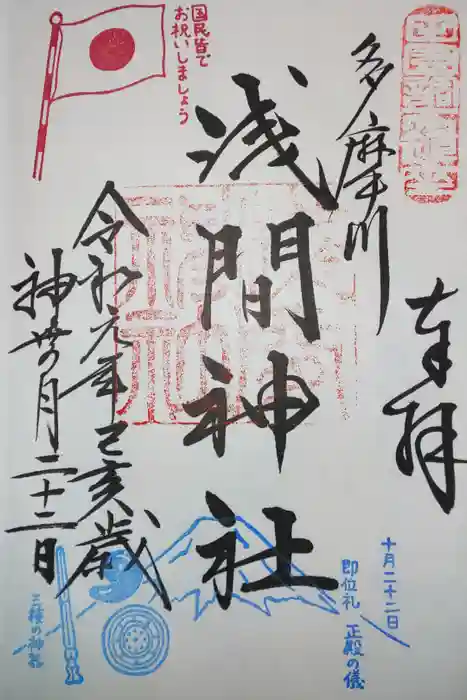 奉拝
多摩川
浅間神社
令和元年己亥歳
神無月二十二日
国民皆で
お祝いしましょう
十月二十二日
即位礼
正殿の儀
三種の神器